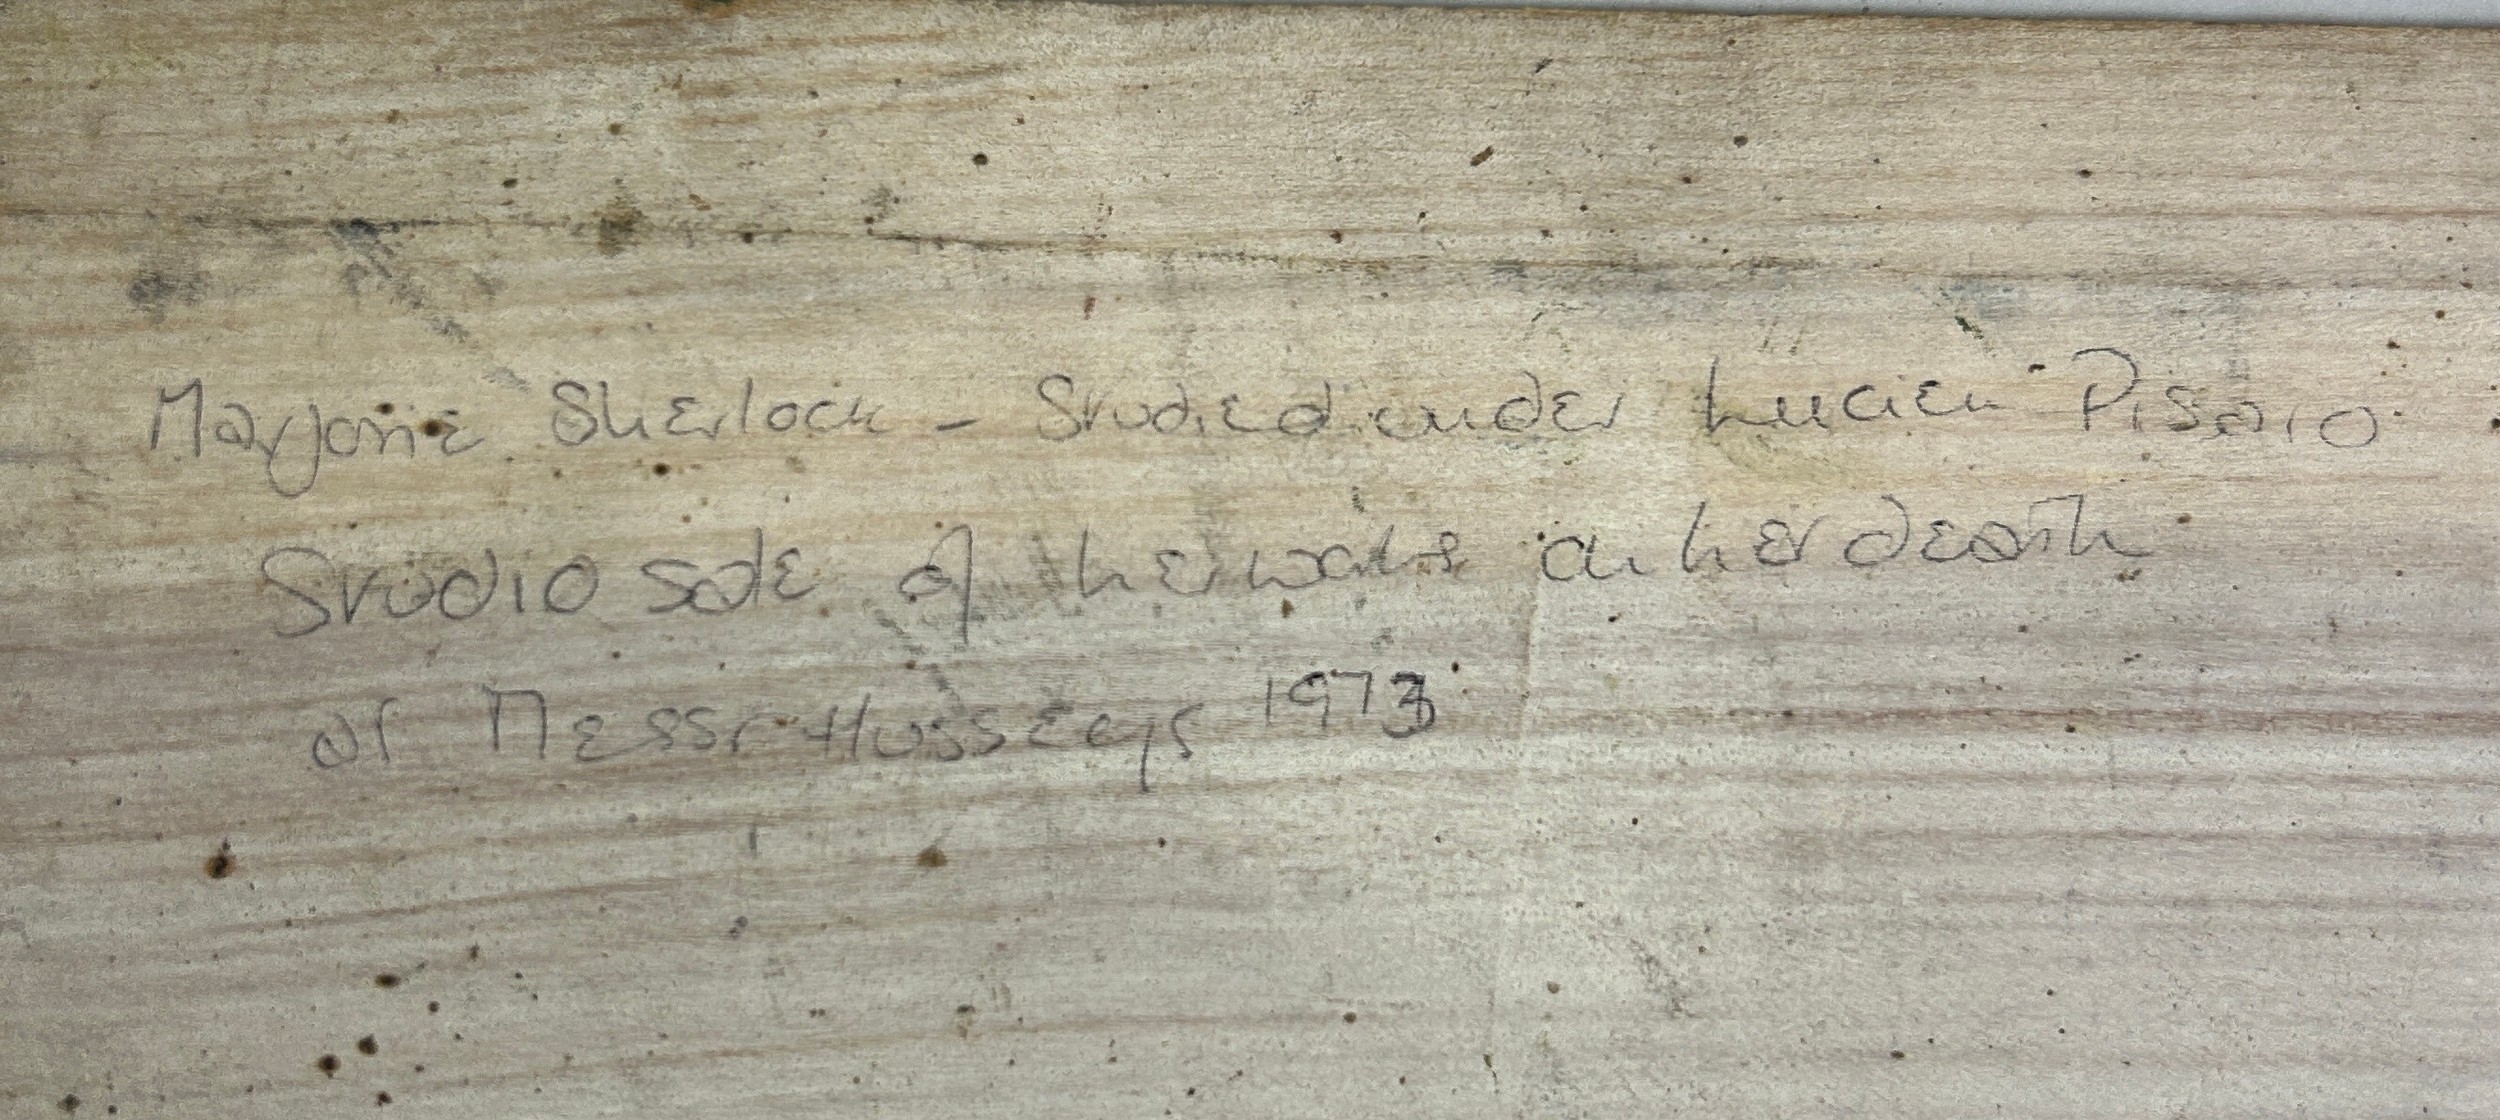 Marjorie Sherlock - Studied under Lucien Pisaro
Studio sale of her works on her death
at Messrs Husseys 1973